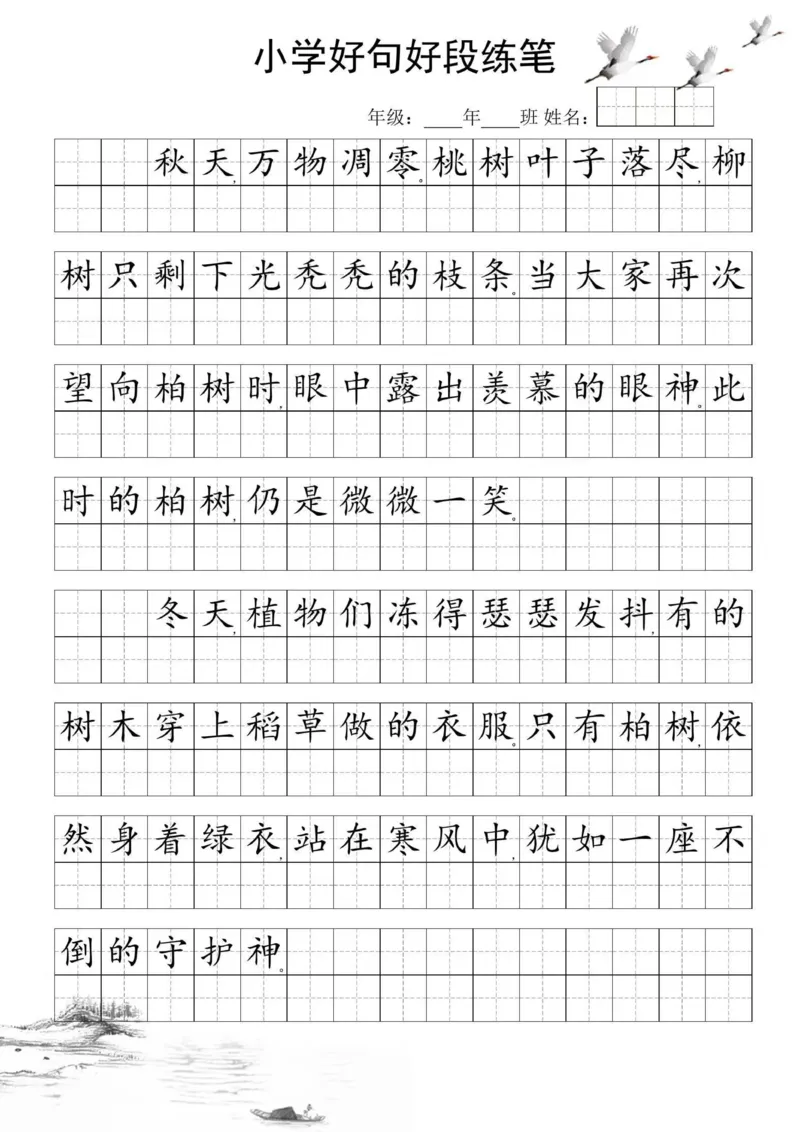 小学好句好段练笔
年级：____年____班 姓名：
秋天,万物凋零。桃树叶子落尽,柳
树只剩下光秃秃的枝条。当大家再次
望向柏树时,眼中露出羡慕的眼神。此
时的柏树,仍是微微一笑。
冬天,植物们冻得瑟瑟发抖,有的
树木穿上稻草做的衣服。只有柏树,依
然身着绿衣,站在寒风中,犹如一座不
倒的守护神。